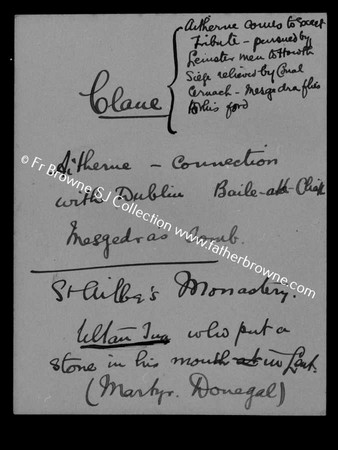 Aitherne comes to exact
Tribute - pursued by
Leinster men to Howth
Siege relieved by Conal
Cernach - Mesgedra flies
to his ford
Clane
Aitherne - Connection
with Dublin Baile-ath-Cliath
Mesgedras tomb.
St Ailbe's Monastery.
Ultan Tua who put a
stone in his mouth at in Lent.
(Martyr. Donegal)
© Fr Browne SJ Collection www.fatherbrowne.com